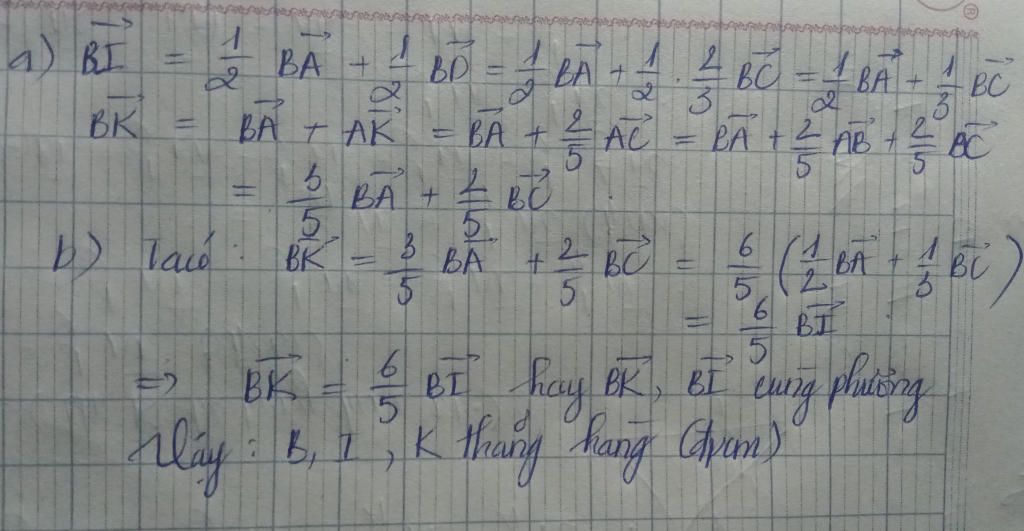 a) $\overrightarrow{BI} = \frac{1}{2} \overrightarrow{BA} + \frac{1}{2} \overrightarrow{BD} = \frac{1}{2} \overrightarrow{BA} + \frac{1}{2} \cdot \frac{2}{3} \overrightarrow{BC} = \frac{1}{2} \overrightarrow{BA} + \frac{1}{3} \overrightarrow{BC}$
$\overrightarrow{BK} = \overrightarrow{BA} + \overrightarrow{AK} = \overrightarrow{BA} + \frac{2}{5} \overrightarrow{AC} = \overrightarrow{BA} + \frac{2}{5} \overrightarrow{AB} + \frac{2}{5} \overrightarrow{BC}$
$= \frac{3}{5} \overrightarrow{BA} + \frac{2}{5} \overrightarrow{BC}$
b) Ta có : $\overrightarrow{BK} = \frac{3}{5} \overrightarrow{BA} + \frac{2}{5} \overrightarrow{BC} = \frac{6}{5} \left( \frac{1}{2} \overrightarrow{BA} + \frac{1}{3} \overrightarrow{BC} \right)$
$= \frac{6}{5} \overrightarrow{BI}$
$\Rightarrow \overrightarrow{BK} = \frac{6}{5} \overrightarrow{BI}$ hay $\overrightarrow{BK}$, $\overrightarrow{BI}$ cùng phương
Vậy : B, I, K thẳng hàng (đpcm)